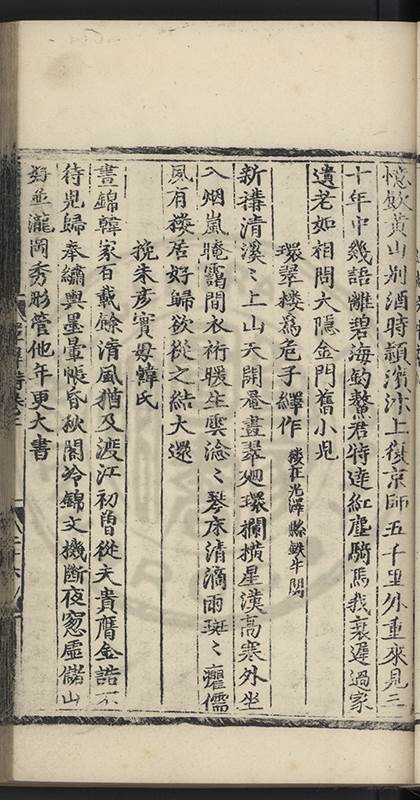 憶飲黃山別酒時潁濱汴上復京師五千里外重來見三
十年中幾語離碧海釣鰲君特達紅塵騎馬我衰遲過家
遺老如相問大隱金門舊小兒
環翠樓爲危子繹作 樓在光澤縣鉄牛関
新搆清溪〻上山天開罨畫翠廻環攔橫星漢高寒外坐
入烟嵐晻靄間衣術暖生雲淰〻琴床清滴雨斑〻癯儒
風有樓居好歸欲從之結大還
挽朱彥實母韓氏
晝錦韓家百載餘清風猶及渡江初曽從夫貴膺金誥不
待兒歸奉繡輿墨暈帳昏秋閣冷錦文機斷夜窓虛儲山
好並瀧岡秀彤管他年更大書